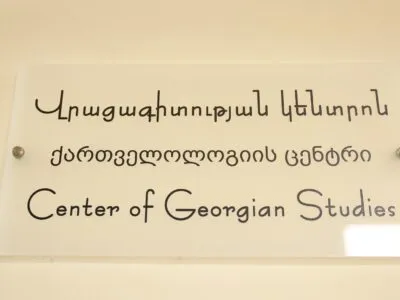 Վրացագիտության կենտրոն
ქართველოლოგიის ცენტრი
Center of Georgian Studies